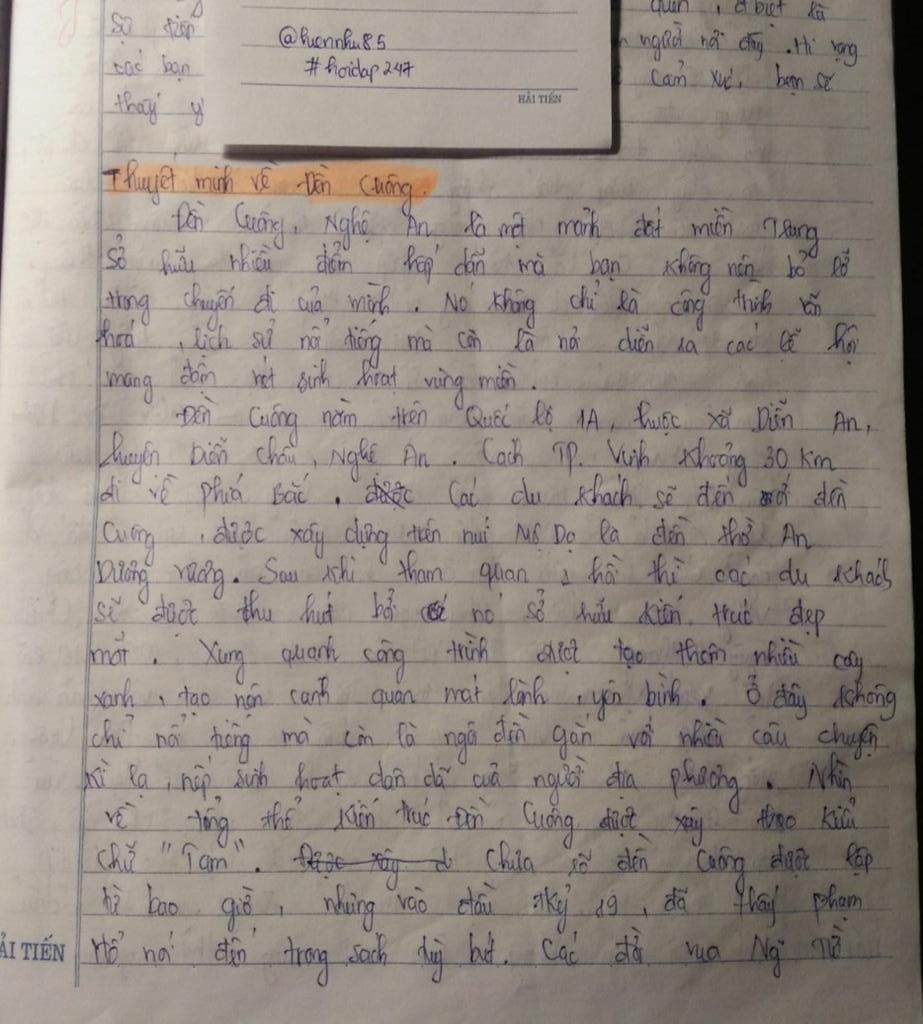 quan, đặc biệt là
Sự tiếp
@huonnhu85
người nơi đây. Hi vọng
#hoidap247
các bạn
cảm xúc, bạn sẽ
thấy y
HẢI TIẾN
Thuyết minh về Đền Cuông.
Đền Cuông, Nghệ An là một mảnh đất miền Trung
Sở hữu nhiều điểm hấp dẫn mà bạn không nên bỏ lỡ
trong chuyến đi của mình. Nó không chỉ là công trình văn
hoá, lịch sử nổi tiếng mà còn là nơi diễn ra các lễ hội
mang đậm nét sinh hoạt vùng miền.
Đền Cuông nằm trên Quốc lộ 1A, thuộc xã Diễn An,
huyện Diễn Châu, Nghệ An. Cách TP. Vinh khoảng 30 km
đi về phía Bắc. Các du khách sẽ đến với đền
Cuông, được xây dựng trên núi Mộ Dạ là đền thờ An
Dương vương. Sau khi tham quan 1 hồi thì các du khách
sẽ được thu hút bởi nó sở hữu kiến trúc đẹp
mắt. Xung quanh công trình được tạo thêm nhiều cây
xanh, tạo nên cảnh quan mát lành, yên bình. Ở đây không
chỉ nổi tiếng mà còn là ngôi đền gắn với nhiều câu chuyện
kì lạ, nếp sinh hoạt dân dã của người địa phương. Nhìn
về tổng thể kiến trúc Đền Cuông được xây theo kiểu
chữ "Tam". Chưa rõ đền Cuông được lập
từ bao giờ, nhưng vào đầu tkỷ 19, đã thấy phạm
Hổ nói đến trong sách tùy bút. Các đời vua Ng
ẢI TIẾN